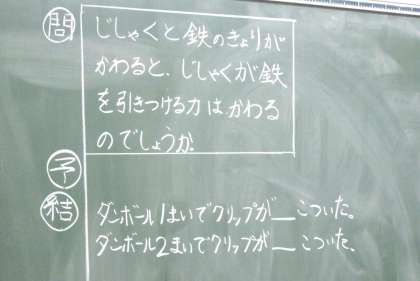 問 じしゃくと鉄のきょりが
かわると、じしゃくが鉄
を引きつける力はかわる
のでしょうか
予
結 ダンボール1まいでクリップが__こついた。
ダンボール2まいでクリップが__こついた、